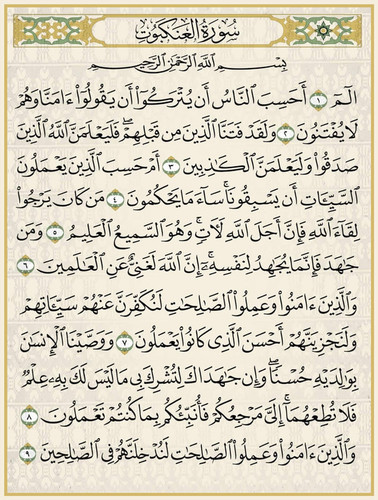 سُورَةُ الْعَنكَبُوتِ
بِسْمِ اللَّهِ الرَّحْمَٰنِ الرَّحِيمِ
الٓمٓ ١ أَحَسِبَ ٱلنَّاسُ أَن يُتْرَكُوٓا۟ أَن يَقُولُوٓا۟ ءَامَنَّا وَهُمْ
لَا يُفْتَنُونَ ٢ وَلَقَدْ فَتَنَّا ٱلَّذِينَ مِن قَبْلِهِمْ ۖ فَلَيَعْلَمَنَّ ٱللَّهُ ٱلَّذِينَ
صَدَقُوا۟ وَلَيَعْلَمَنَّ ٱلْكَـٰذِبِينَ ٣ أَمْ حَسِبَ ٱلَّذِينَ يَعْمَلُونَ
ٱلسَّيِّـَٔاتِ أَن يَسْبِقُونَا ۚ سَآءَ مَا يَحْكُمُونَ ٤ مَن كَانَ يَرْجُوا۟
لِقَآءَ ٱللَّهِ فَإِنَّ أَجَلَ ٱللَّهِ لَـَٔاتٍ ۚ وَهُوَ ٱلسَّمِيعُ ٱلْعَلِيمُ ٥ وَمَن
جَـٰهَدَ فَإِنَّمَا يُجَـٰهِدُ لِنَفْسِهِۦٓ ۚ إِنَّ ٱللَّهَ لَغَنِىٌّ عَنِ ٱلْعَـٰلَمِينَ ٦
وَٱلَّذِينَ ءَامَنُوا۟ وَعَمِلُوا۟ ٱلصَّـٰلِحَـٰتِ لَنُكَفِّرَنَّ عَنْهُمْ سَيِّـَٔاتِهِمْ
وَلَنَجْزِيَنَّهُمْ أَحْسَنَ ٱلَّذِى كَانُوا۟ يَعْمَلُونَ ٧ وَوَصَّيْنَا ٱلْإِنسَـٰنَ
بِوَٰلِدَيْهِ حُسْنًا ۖ وَإِن جَـٰهَدَاكَ لِتُشْرِكَ بِى مَا لَيْسَ لَكَ بِهِۦ عِلْمٌ
فَلَا تُطِعْهُمَآ ۚ إِلَىَّ مَرْجِعُكُمْ فَأُنَبِّئُكُم بِمَا كُنتُمْ تَعْمَلُونَ ٨
وَٱلَّذِينَ ءَامَنُوا۟ وَعَمِلُوا۟ ٱلصَّـٰلِحَـٰتِ لَنُدْخِلَنَّهُمْ فِى ٱلصَّـٰلِحِينَ ٩